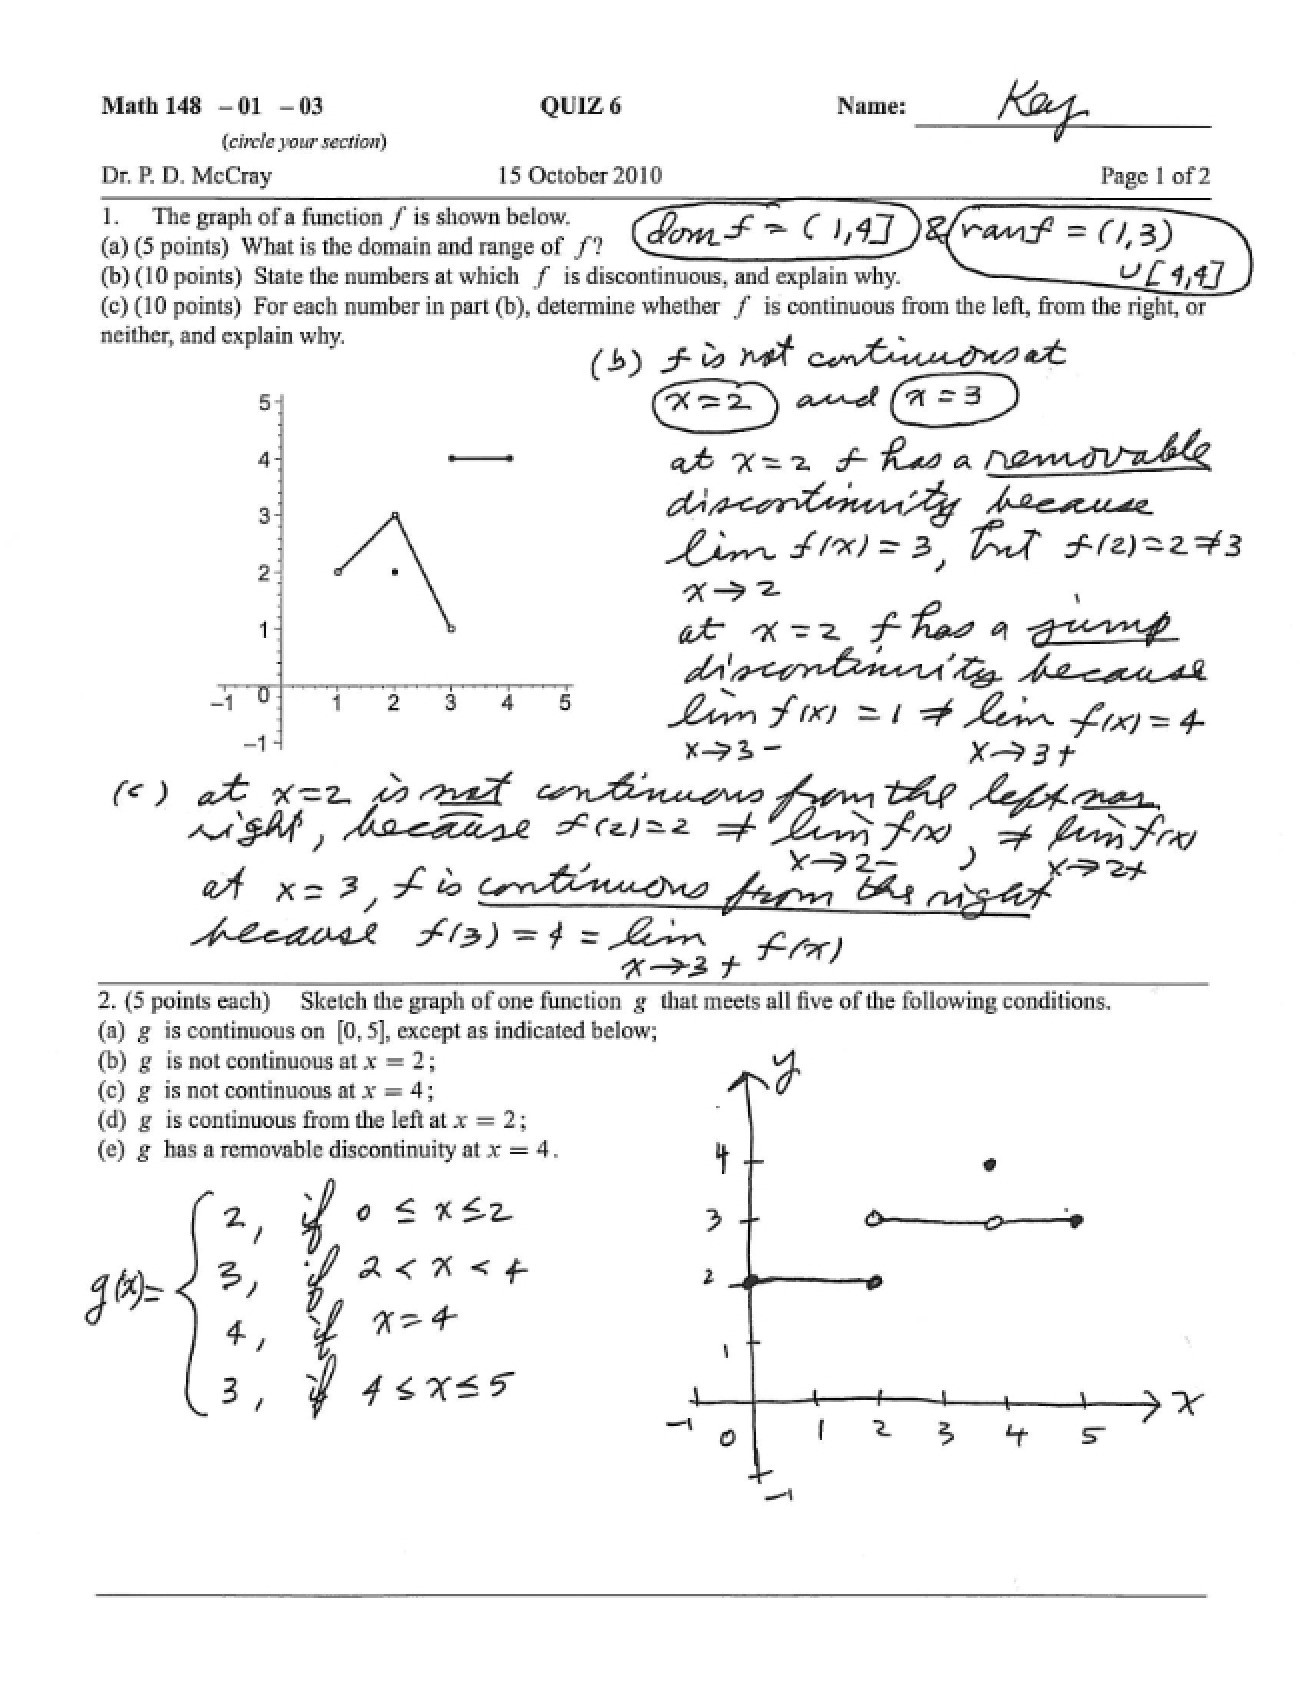 Math 148 – 01 – 03 QUIZ 6 Name: Key
(circle your section)
Dr. P. D. McCray 15 October 2010 Page 1 of 2
1. The graph of a function f is shown below.
(a) (5 points) What is the domain and range of f? dom f = (1,4] & ran f = (1,3)
∪ [4,4]
(b) (10 points) State the numbers at which f is discontinuous, and explain why.
(c) (10 points) For each number in part (b), determine whether f is continuous from the left, from the right, or
neither, and explain why.
(b) f is not continuous at
x=2 and x=3
at x=2 f has a removable
discontinuity because
lim f(x) = 3, but f(2)=2≠3
x→2
at x=2 f has a jump
discontinuity because
lim f(x) = 1 ≠ lim f(x) = 4
x→3− x→3+
5
4
3
2
1
−1 0 1 2 3 4 5
−1
(c) at x=2 is not continuous from the left nor
right, because f(2)=2 ≠ lim f(x), ≠ lim f(x)
x→2− x→2+
at x=3, f is continuous from the right
because f(3) = 4 = lim f(x)
x→3+
2. (5 points each) Sketch the graph of one function g that meets all five of the following conditions.
(a) g is continuous on [0, 5], except as indicated below;
(b) g is not continuous at x = 2;
(c) g is not continuous at x = 4;
(d) g is continuous from the left at x = 2;
(e) g has a removable discontinuity at x = 4.
g(x)= { 2, if 0 ≤ x ≤ 2
3, if 2 < x < 4
4, if x=4
3, if 4 ≤ x ≤ 5
y
4
3
2
1
−1 0 1 2 3 4 5 x
−1